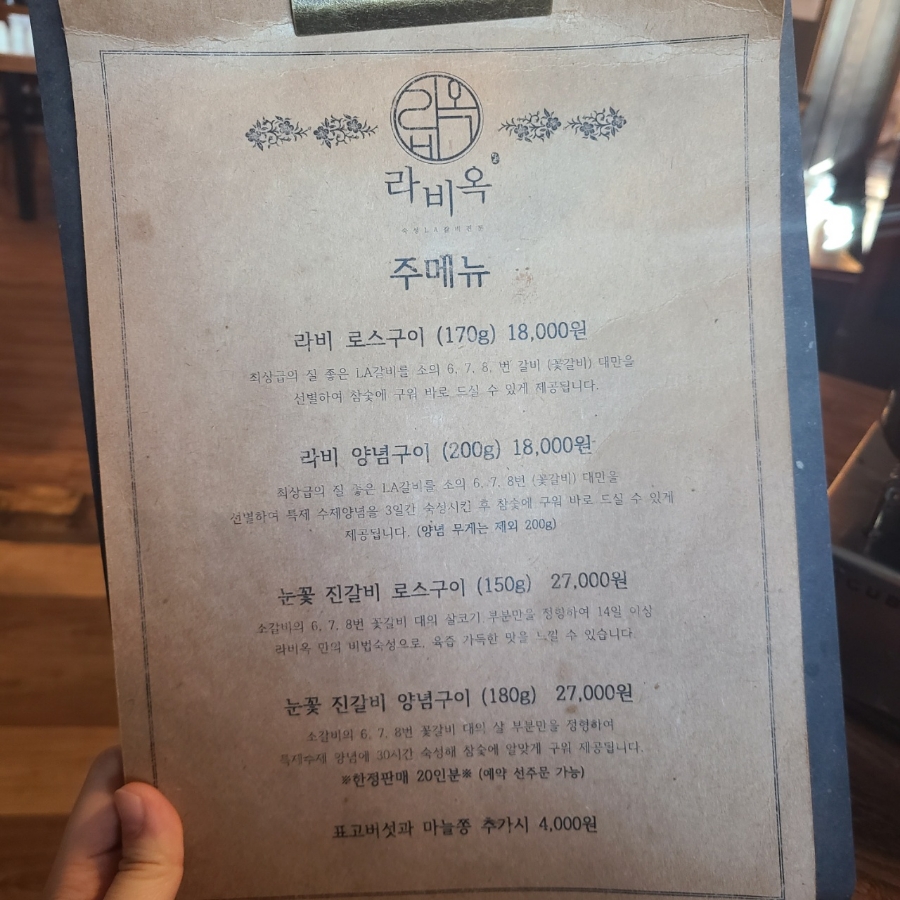 라비옥
라비옥
숙성LA갈비전문
주메뉴
라비 로스구이 (170g) 18,000원
최상급의 질 좋은 LA갈비를 소의 6, 7, 8, 번 갈비 (꽃갈비) 대만을
선별하여 참숯에 구워 바로 드실 수 있게 제공됩니다.
라비 양념구이 (200g) 18,000원
최상급의 질 좋은 LA갈비를 소의 6, 7, 8번 (꽃갈비) 대만을
선별하여 특제 수제양념을 3일간 숙성시킨 후 참숯에 구워 바로 드실 수 있게
제공됩니다. (양념 무게는 제외 200g)
눈꽃 진갈비 로스구이 (150g) 27,000원
소갈비의 6, 7, 8번 꽃갈비 대의 살코기 부분만을 정형하여 14일 이상
라비옥 만의 비법숙성으로, 육즙 가득한 맛을 느낄 수 있습니다.
눈꽃 진갈비 양념구이 (180g) 27,000원
소갈비의 6, 7, 8번 꽃갈비 대의 살 부분만을 정형하여
특제수제 양념에 30시간 숙성해 참숯에 알맞게 구워 제공됩니다.
※한정판매 20인분※ (예약 선주문 가능)
표고버섯과 마늘쫑 추가시 4,000원